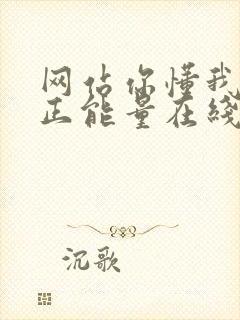 网站你懂我
正能量在线
沉歌